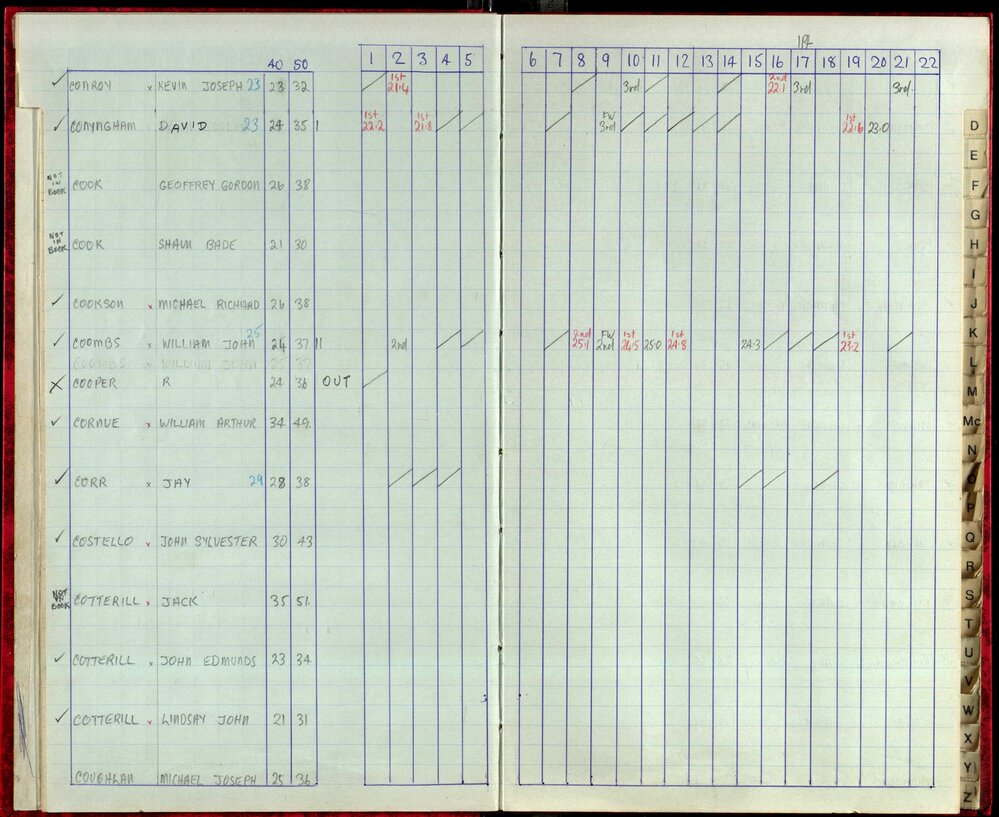 1pt
40 50 1 2 3 4 5 6 7 8 9 10 11 12 13 14 15 16 17 18 19 20 21 22
✓ CONROY x KEVIN JOSEPH 23 23 32 / 1st 21.4 / 3rd / / 2nd 22.1 3rd 3rd
✓ CONYNGHAM DAVID 23 24 35 1 1st 22.2 1st 21.8 / / / FW 3rd / / / / / 1st 22.6 23.0
NOT IN BOOK COOK GEOFFREY GORDON 26 38
NOT IN BOOK COOK SHAUN BADE 21 30
✓ COOKSON x MICHAEL RICHARD 26 38
✓ COOMBS x WILLIAM JOHN 25 24 37 11 2nd / / / 2nd 25.1 FW 2nd 1st 24.5 25.0 1st 24.8 24.3 / / / 1st 23.2 /
COOMBS x WILLIAM JOHN 25 37
X COOPER R 24 36 OUT /
✓ CORNUE x WILLIAM ARTHUR 34 49
✓ CORR x JAY 29 28 38 / / / / / /
✓ COSTELLO x JOHN SYLVESTER 30 43
NOT IN BOOK COTTERILL x JACK 35 51
✓ COTTERILL x JOHN EDMUNDS 23 34
✓ COTTERILL x LINDSAY JOHN 21 31
COUGHLAN MICHAEL JOSEPH 25 36
D
E
F
G
H
I
J
K
L
M
Mc
N
O
P
Q
R
S
T
U
V
W
X
Y
Z